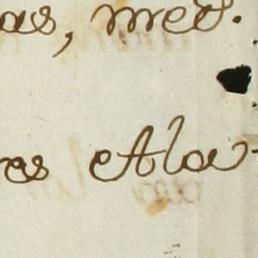 as, med.
es Ala-